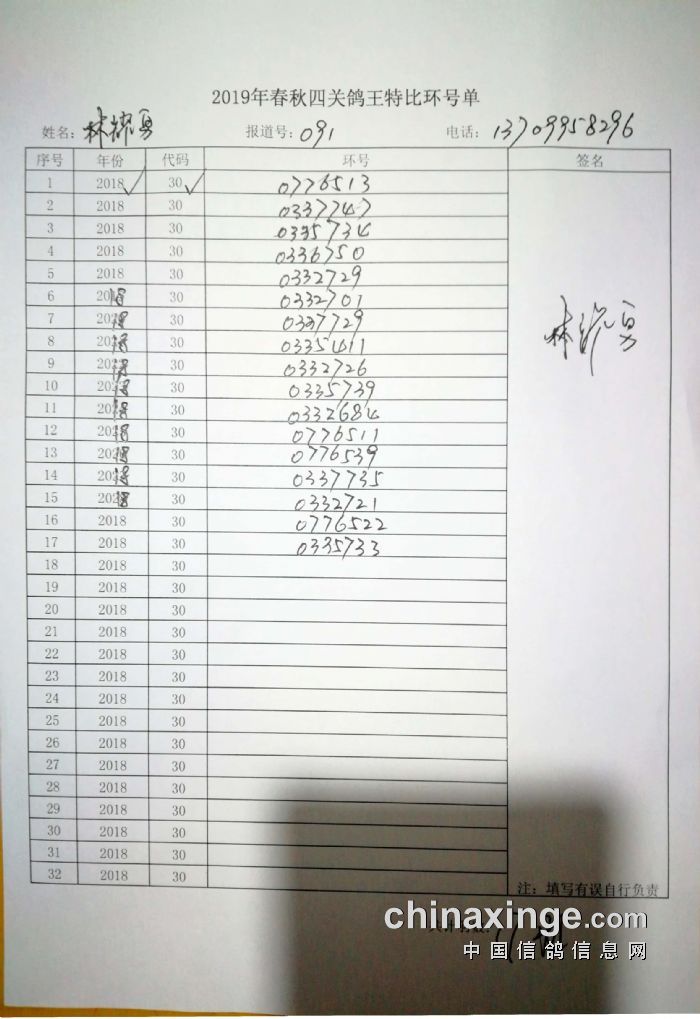 2019年春秋四关鸽王特比环号单
姓名：林锦勇 报道号：091 电话：13709958296
序号 年份 代码 环号 签名
1 2018 30 0776513
2 2018 30 0337747
3 2018 30 0335734
4 2018 30 0336750
5 2018 30 0332729
6 30 0332701
7 30 0337729
8 30 0335411
9 30 0332726
10 30 0335739
11 30 0332684
12 30 0776511
13 30 0776539
14 30 0337735
15 30 0332721
16 2018 30 0776522
17 2018 30 0335733
18 2018 30
19 2018 30
20 2018 30
21 2018 30
22 2018 30
23 2018 30
24 2018 30
25 2018 30
26 2018 30
27 2018 30
28 2018 30
29 2018 30
30 2018 30
31 2018 30
32 2018 30
注：填写有误自行负责
chinaxinge.com
中国信鸽信息网